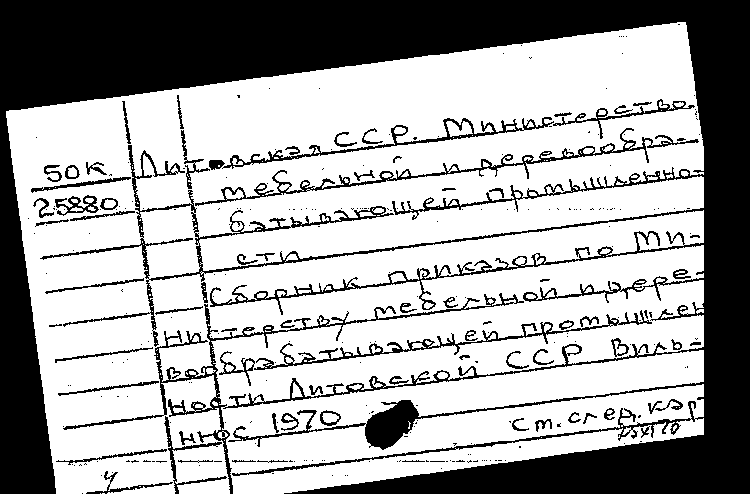 50К Литовская ССР. Министерство
25880 мебельной и деревообра-
батывающей промышленно-
сти.
Сборник приказов по Ми-
нистерству мебельной и дере-
вообрабатывающей промышлен
ности Литовской ССР Виль-
нюс, 1970
См. след. кар
4